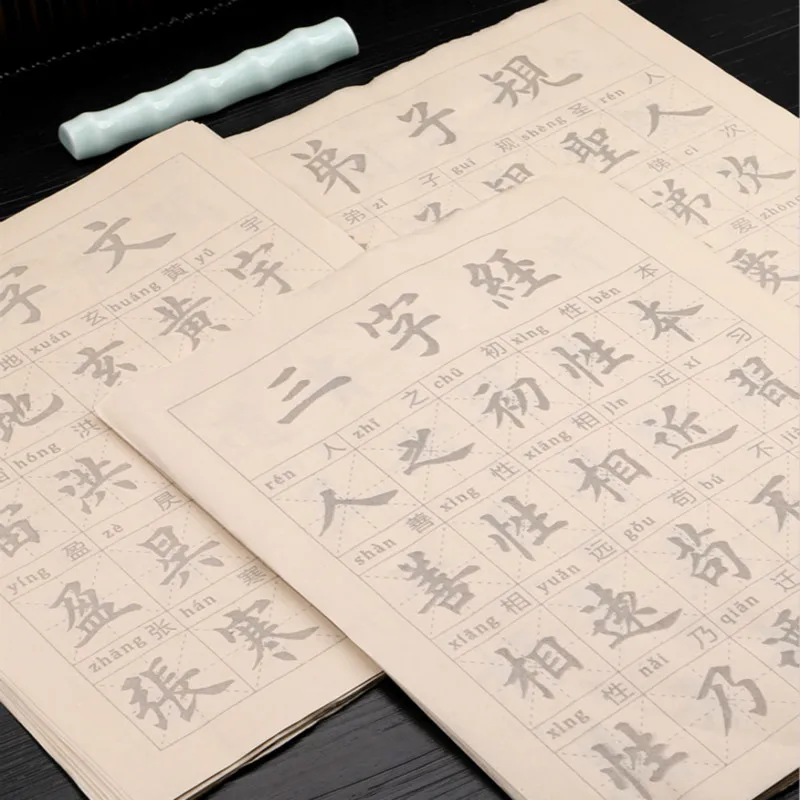 字文
地 xuán 玄 huáng 黄 yǔ 宇
地玄黃宇
宙 hóng 洪
宙洪
yíng 盈 zè 昃
盈昃
zhāng 张 hán 寒
張寒
弟子規
弟 zǐ 子 guī 规 shèng 圣 rén 人
子規聖人
悌 cì 次
悌次
爱 zhòng
愛
三字經
rén 人 zhī 之 chū 初 xìng 性 běn 本
人之初性本
shàn 善 xìng 性 xiāng 相 jìn 近 xí 习
善性相近習
xiāng 相 yuǎn 远 gǒu 苟 bú 不
相遠苟不
xìng 性 nǎi 乃 qiān 迁
性乃